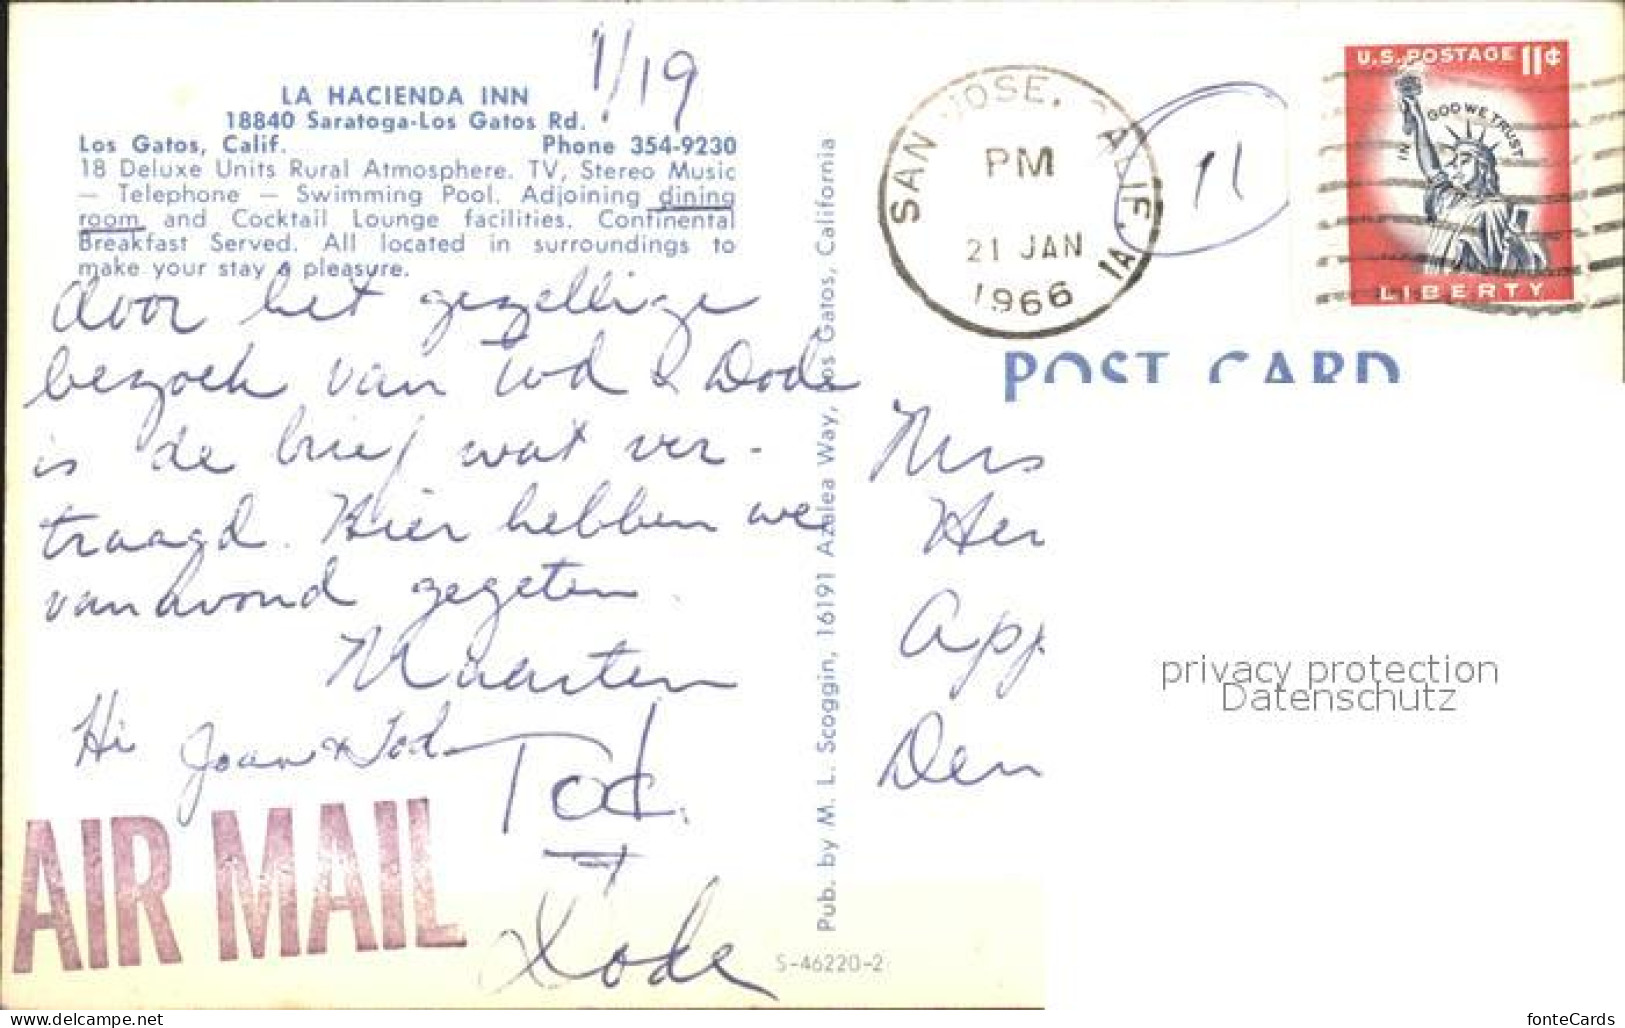 1/19
LA HACIENDA INN
18840 Saratoga-Los Gatos Rd.
Los Gatos, Calif. Phone 354-9230
18 Deluxe Units Rural Atmosphere. TV, Stereo Music
— Telephone — Swimming Pool. Adjoining dining
room and Cocktail Lounge facilities. Continental
Breakfast Served. All located in surroundings to
make your stay a pleasure.
door het gezellige
bezoek van Tod & Dode
is de brief wat ver-
traagd. Hier hebben we
vanavond gegeten.
Maarten
Hi Joan & Tod
Tod.
+
Dode
AIR MAIL
Pub. by M. L. Scoggin, 16191 Azalea Way, Los Gatos, California
S-46220-2
SAN JOSE, CALIF.
PM
21 JAN
1966
1A
11
U.S. POSTAGE 11¢
IN GOD WE TRUST
LIBERTY
POST CARD
Mrs
Her
App
Den
privacy protection
Datenschutz
www.delcampe.net
fonteCards